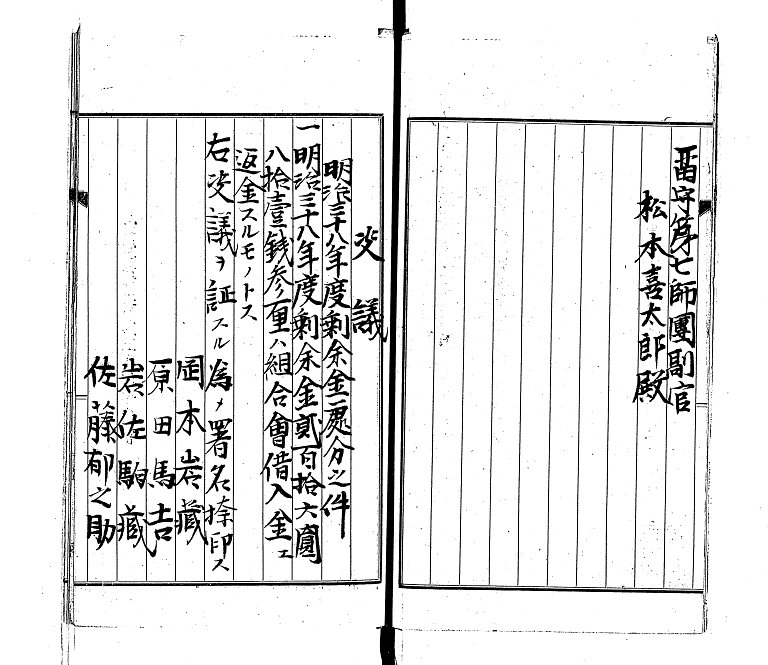 留守第七師團副官
松本喜太郎殿
决議
明治三十八年度剰余金処分之件
一明治三十八年度剰余金貳百拾六圓
八拾壹銭参厘ハ組合會借入金エ
返金スルモノトス
右决議ヲ証スル為メ署名捺印ス
岡本岩藏
原田馬吉
岩佐駒藏
佐藤郁之助